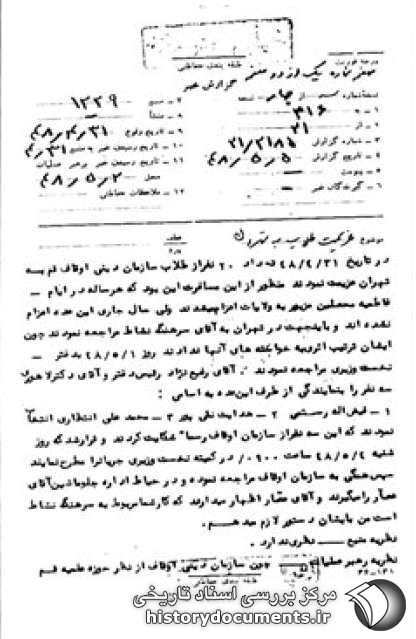 طبقه بندی حفاظتی
درجه فوریت
صفحه شماره یک از دو صفحه گزارش خبر
نسخه شماره از چهار نسخه
۱ - به ۳۱۶
۲ - از ۲۱
۳ - شماره گزارش ۲۱/۲۱۸۱
۴ - تاریخ گزارش ۴۸/۵/۵
۵ - پیوست
۶ - گیرندگان خبر
۷ - منبع ۱۳۳۹
۸ - منشأ
۹ - تاریخ وقوع ۴۸/۴/۳۱
۱۰ - تاریخ رسیدن خبر به منبع ۴/۳۱
۱۱ - تاریخ رسیدن خبر برهبر عملیات
محل ۴۸/۵/۲
۱۲ - ملاحظات حفاظتی
موضوع عزیمت طلاب به تهران
در تاریخ ۴۸/۴/۳۱ تعداد ۲۰ نفراز طلاب سازمان دینی اوقاف قم به
تهران عزیمت نمودند منظور از این مسافرت این بود که هرساله در ایام
فاطمیه محصلین مزبور به ولایات اعزام میشدند ولی سال جاری این عده اعزام
نشده اند و باینجهت در تهران به آقای سرهنگ نشاط مراجعه نمودند چون
ایشان ترتیب اثری به خواسته های آنها ندادند روز ۴۸/۵/۱ بدفتر
نخست وزیری مراجعه نمودند آقای رفیع نژاد رئیس دفتر و آقای دکتر لاهور
سه نفر را بنمایندگی از طرف این عده به اسامی :
۱ - فیض اله رستمی ۲ - هدایت تقی پور ۳ - محمد علی انتظاری انتخاب
نمودند که این سه نفر از سازمان اوقاف رسما شکایت کردند و قرار شد که روز
شنبه ۴۸/۵/۴ ساعت ۰۹۰۰ در کمیته نخست وزیری جریانرا مطرح نمایند
سپس همگی به سازمان اوقاف مراجعه نموده و در حیاط اداره جلو ماشین آقای
عصار را میگیرند و آقای عصار اظهار میدارند که کار شما مربوط به سرهنگ نشاط
است من بایشان دستور لازم میدهم .
نظریه منبع - نظری ندارد .
نظریه رهبر عملیات چون سازمان دینی اوقاف از نظر حوزه علمیه قم
طبقه بندی حفاظتی
مرکز بررسی اسناد تاریخی
historydocuments.ir